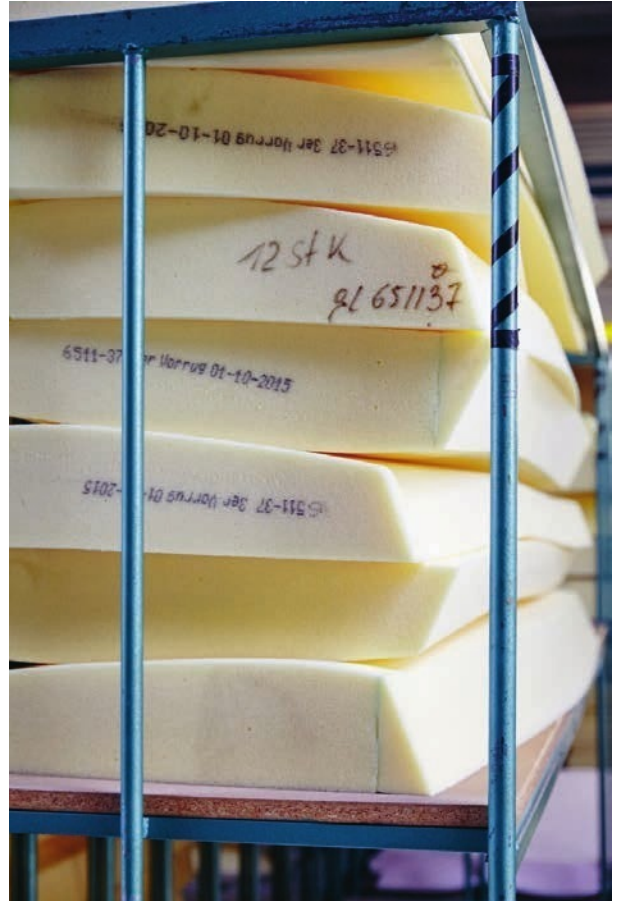 6511-37 3er Vorrug 01-10-20
12 St K
gl 651137
6511-37 er Vorrug 01-10-2015
6511-37 3er Vorrug 01- -2015